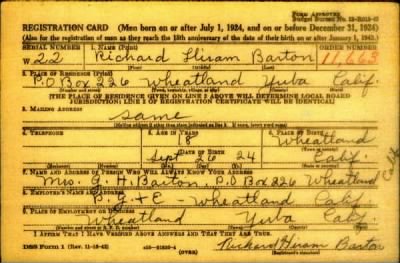 FORM APPROVED
REGISTRATION CARD (Men born on or after July 1, 1924, and on or before December 31, 1924)
(Also for the registration of men as they reach the 18th anniversary of the date of their birth on or after January 1, 1943.)
SERIAL NUMBER 1. NAME (Print) ORDER NUMBER
W 22 Richard Hiram Barton 11,663
2. PLACE OF RESIDENCE (Print)
P.O Box 226 Wheatland Yuba Calif.
(THE PLACE OF RESIDENCE GIVEN ON LINE 2 ABOVE WILL DETERMINE LOCAL BOARD
JURISDICTION; LINE 2 OF REGISTRATION CERTIFICATE WILL BE IDENTICAL)
3. MAILING ADDRESS
same
4. TELEPHONE 5. AGE IN YEARS 6. PLACE OF BIRTH
18 Wheatland
DATE OF BIRTH
Sept 26 24 Calif.
7. NAME AND ADDRESS OF PERSON WHO WILL ALWAYS KNOW YOUR ADDRESS
Mrs. G. H. Barton, P.O Box 226 Wheatland Calif
8. EMPLOYER'S NAME AND ADDRESS
P. G. + E. Wheatland Calif.
9. PLACE OF EMPLOYMENT OR BUSINESS
Wheatland Yuba Calif.
I AFFIRM THAT I HAVE VERIFIED ABOVE ANSWERS AND THAT THEY ARE TRUE.
DSS Form 1 (OVER) Richard Hiram Barton